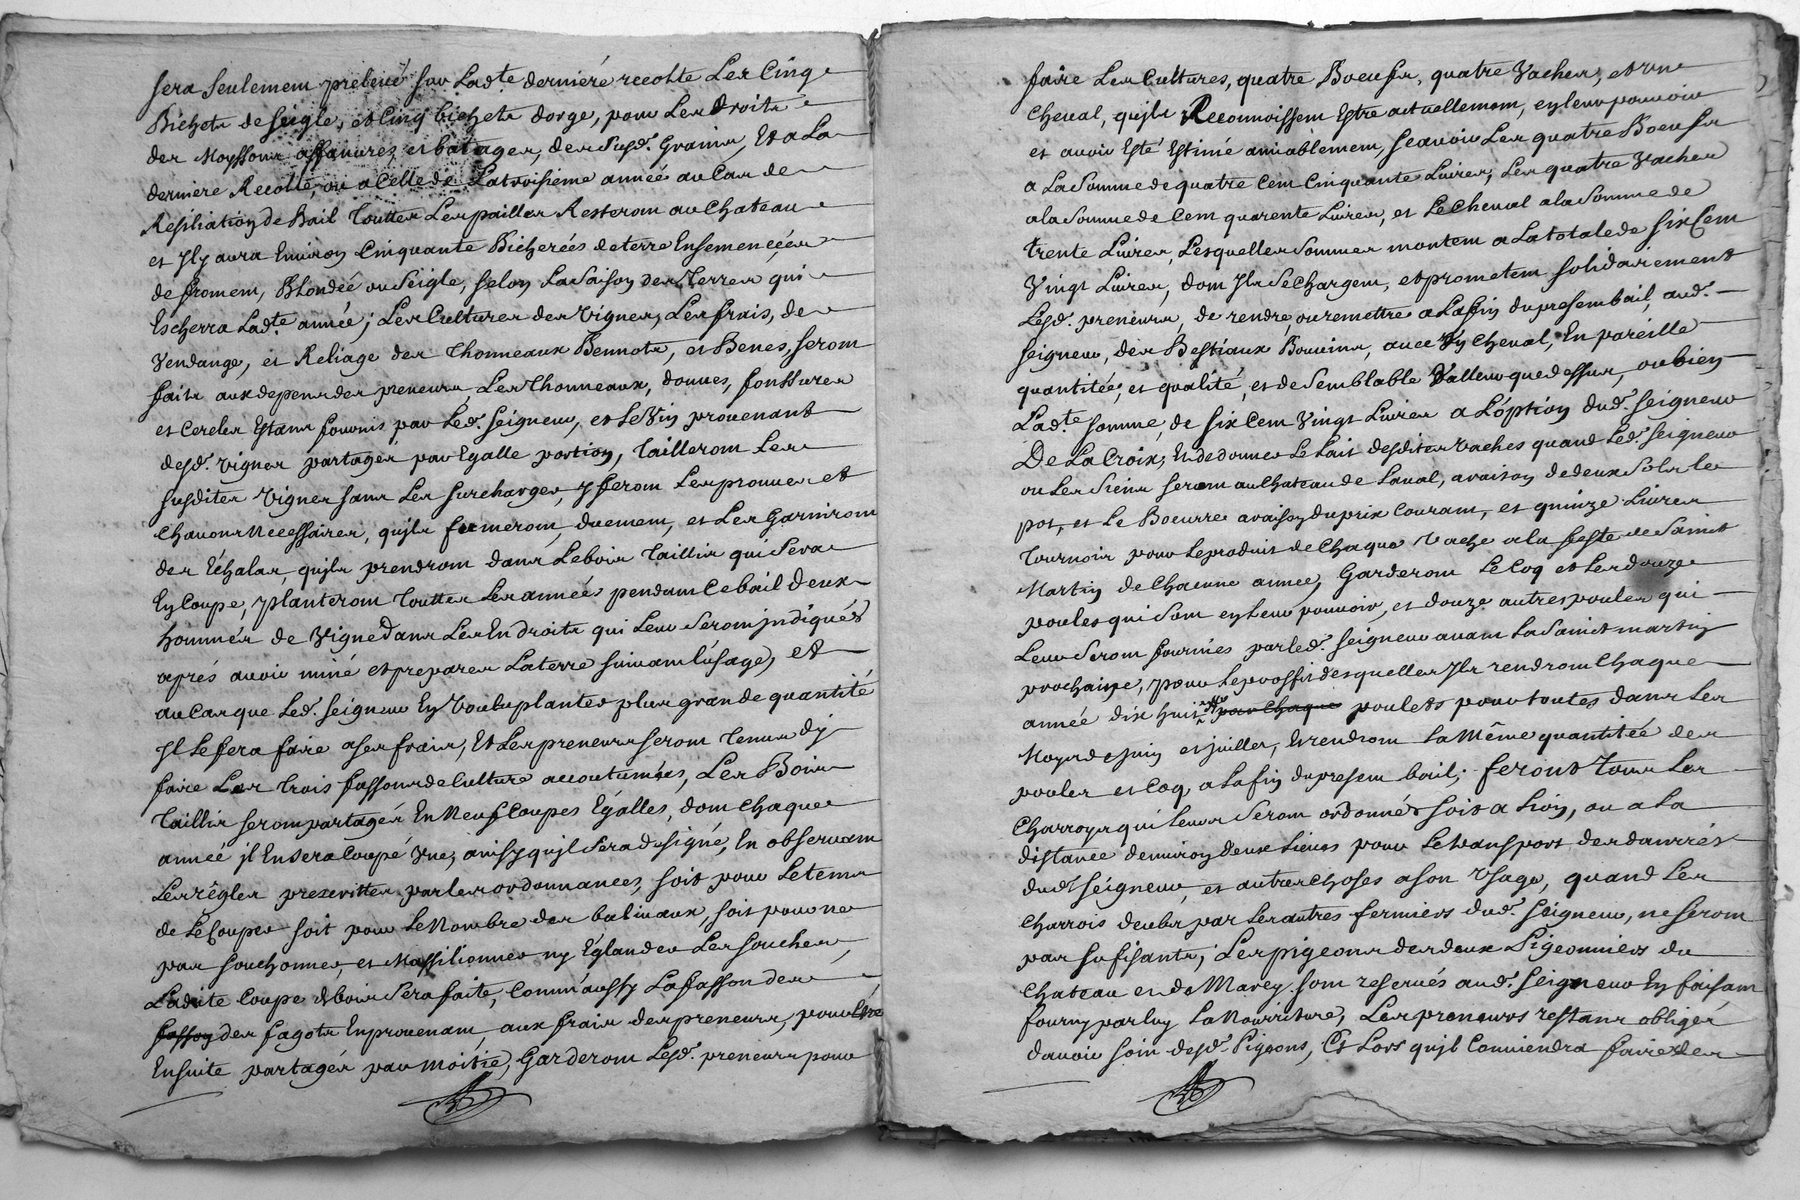 sera seulement prelevé sur Lad.te derniére recolte Les Cinq
Bichets de seigle, et Cinq bichets dorge, pour Les droits
des Moyssons affanures et batages, des susd. Grains, Et a La
derniere Recolte, ou a Celle de La troisieme année au Cas de
Resiliation de Bail Touttes Les pailles Resteront au Chateau
et Jly aura Environ Cinquante Bicherées de terre Ensemencéés
de froment, Blondéé ou Seigle, selon La Saison des Terres qui
Escherra Lad.te année; Les Cultures des Vignes, Les frais, de
Vendange, et Reliage des Thonneaux Bennots, et Benes, seront
faits aux depens des preneurs, Les Thonneaux, douves, fonssures
et Cercles Estans fournis par Led. Seigneur, et Le Vin provenant
desd. vignes partagés par Egalle portion, Tailleront Les
susdites Vignes sans Les surcharger, y feront Les provues et
Chavons Necessaires, qujls fumeront duement, et Les Garniront
des Echalas, qujls prendront dans Le bois Taillis qui Sera
En Coupe, planteront Touttes Les années pendant Ce bail deux
hommés de Vigne dans Les Endroits qui Leur Seront jndiqués
aprés avoir miné et preparer La terre suivant Lusage, et
au Cas que Led. Seigneur En Voulu planter plus grande quantité
Jl Le fera faire a ses frais, Et Les preneurs seront Tenus dy
faire Les Trois fassons de Culture accoutumées, Les Bois
Taillis seront partagés En Neuf Coupes Egalles, dont Chaque
année jl En sera Coupé Vne, ainsy qujl Sera designé, En observant
Les régles prescrittes par Les ordonnances, soit pour Le tems
de Le Couper soit pour Le Nombre des balivaux, soit pour ne
pas souchonner, et Massilionner ny Eglander Les souches,
Ladite Coupe de bois Sera faite, Comm'aussy La fasson des
fasson des fagots En provenant, aux frais des preneurs, pour Etre
Ensuite partagés par moitié, Garderont Lesd. preneurs pour
faire Les Cultures, quatre Boeufs, quatre Vaches, et un
Cheval, qujls Reconnoissent Estre actuellement, en leur pouvoir
et avoir Esté Estimé amiablement, scavoir Les quatre Boeufs
a La Somme de quatre Cent Cinquante Livres, Les quatre Vaches
a la Somme de Cent quarente Livres, et Le Cheval a la Somme de
trente Livres, Lesquelles Sommes montent a La totale de six Cent
Vingt Livres, dont Jls Se Chargent, et prometent solidairement
Lesd. preneurs, de rendre ou remettre a La fin du present bail, aud.
seigneur, des Bestiaux Bouvins, avec Un Cheval, En pareille
quantitée, et qualité, et de Semblable Valleur que dessus, ou bien
Lad.te somme, de six Cent Vingt Livres a Loption dud. Seigneur
De La Croix; Et de donner Le Lait desdites Vaches quand Led. Seigneur
ou Les Siens seront au Chateau de Laval, a raison de deux Sols le
pot, et Le Boeurre a raison du prix Courant, et quinze Livres
Tournois pour Le produit de Chaque Vache a la feste de Saint
Martin de Chacune année, Garderont Le Coq et Les douze
poules qui sont en Leur pouvoir, et douze autres poules qui
Leur Seront fournies par led. Seigneur avant La Saint martin
prochaine, pour Le proffit desquelles Jls rendront Chaque
année dix huit par Chaque poulets pour toutes dans Les
Moys de Juin et juillet, Et rendront La Même quantitée des
poules et Coq, a La fin du present bail; feront Tous Les
Charroys qui Leurs Seront ordonnés soit a Lion, ou a La
distance denviron deux Lieues pour Le transport des danrrés
dud. Seigneur, et autres Choses a son Vsage, quand Les
Charrois deubs par Les autres fermiers dud. Seigneur, ne seront
pas sufisants; Les pigeons des deux Pigeonniers du
Chateau et de Marey sont reservés aud. Seigneur En faisant
fourny par luy La Nourriture, Les preneurs restans obligés
davoir soin desd. Pigeons, Et Lors qujl Conviendra faire des